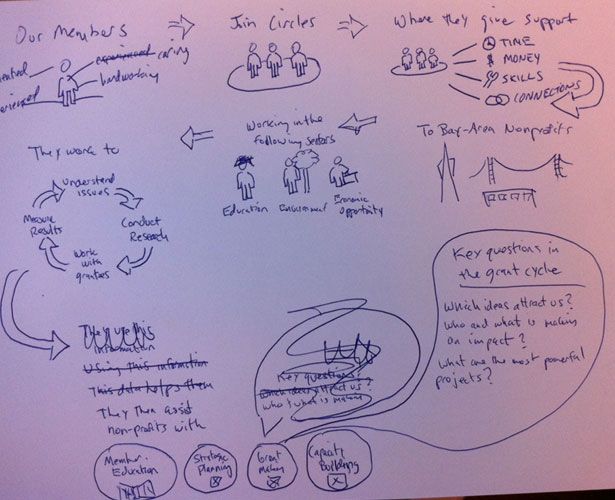 Our Members
Join Circles
Where they give support
caring
hardworking
TIME
MONEY
SKILLS
CONNECTIONS
To Bay-Area Nonprofits
Working in the
following sectors
Education
Environment
Economic
Opportunity
They work to
understand
issues
Conduct
Research
Work
with
grantees
Measure
Results
Key questions in
the grant cycle
Which ideas attract us?
who and what is making
an impact?
What are the most powerful
projects?
They use this
information
Using this information
This data helps them
They then assist
non-profits with
Key questions:
which ideas attract us?
who + what is making
Member
Education
Strategic
Planning
Grant
Making
Capacity
Building